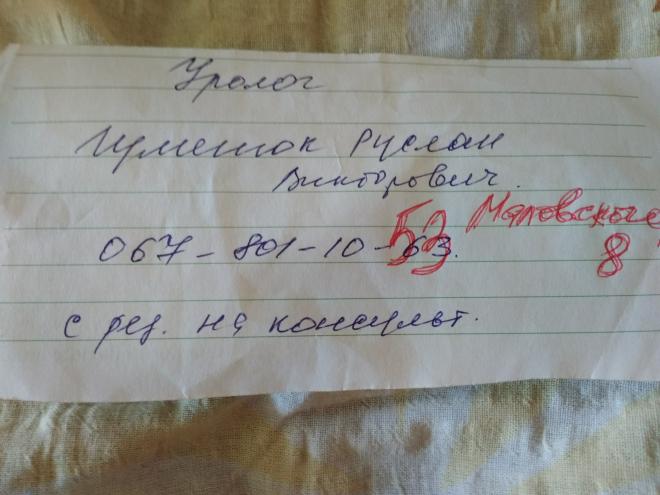 Уролог
Гуменюк Руслан
Викторович.
067-801-10-63.
53
Маловского
8
с рез. на консульт.